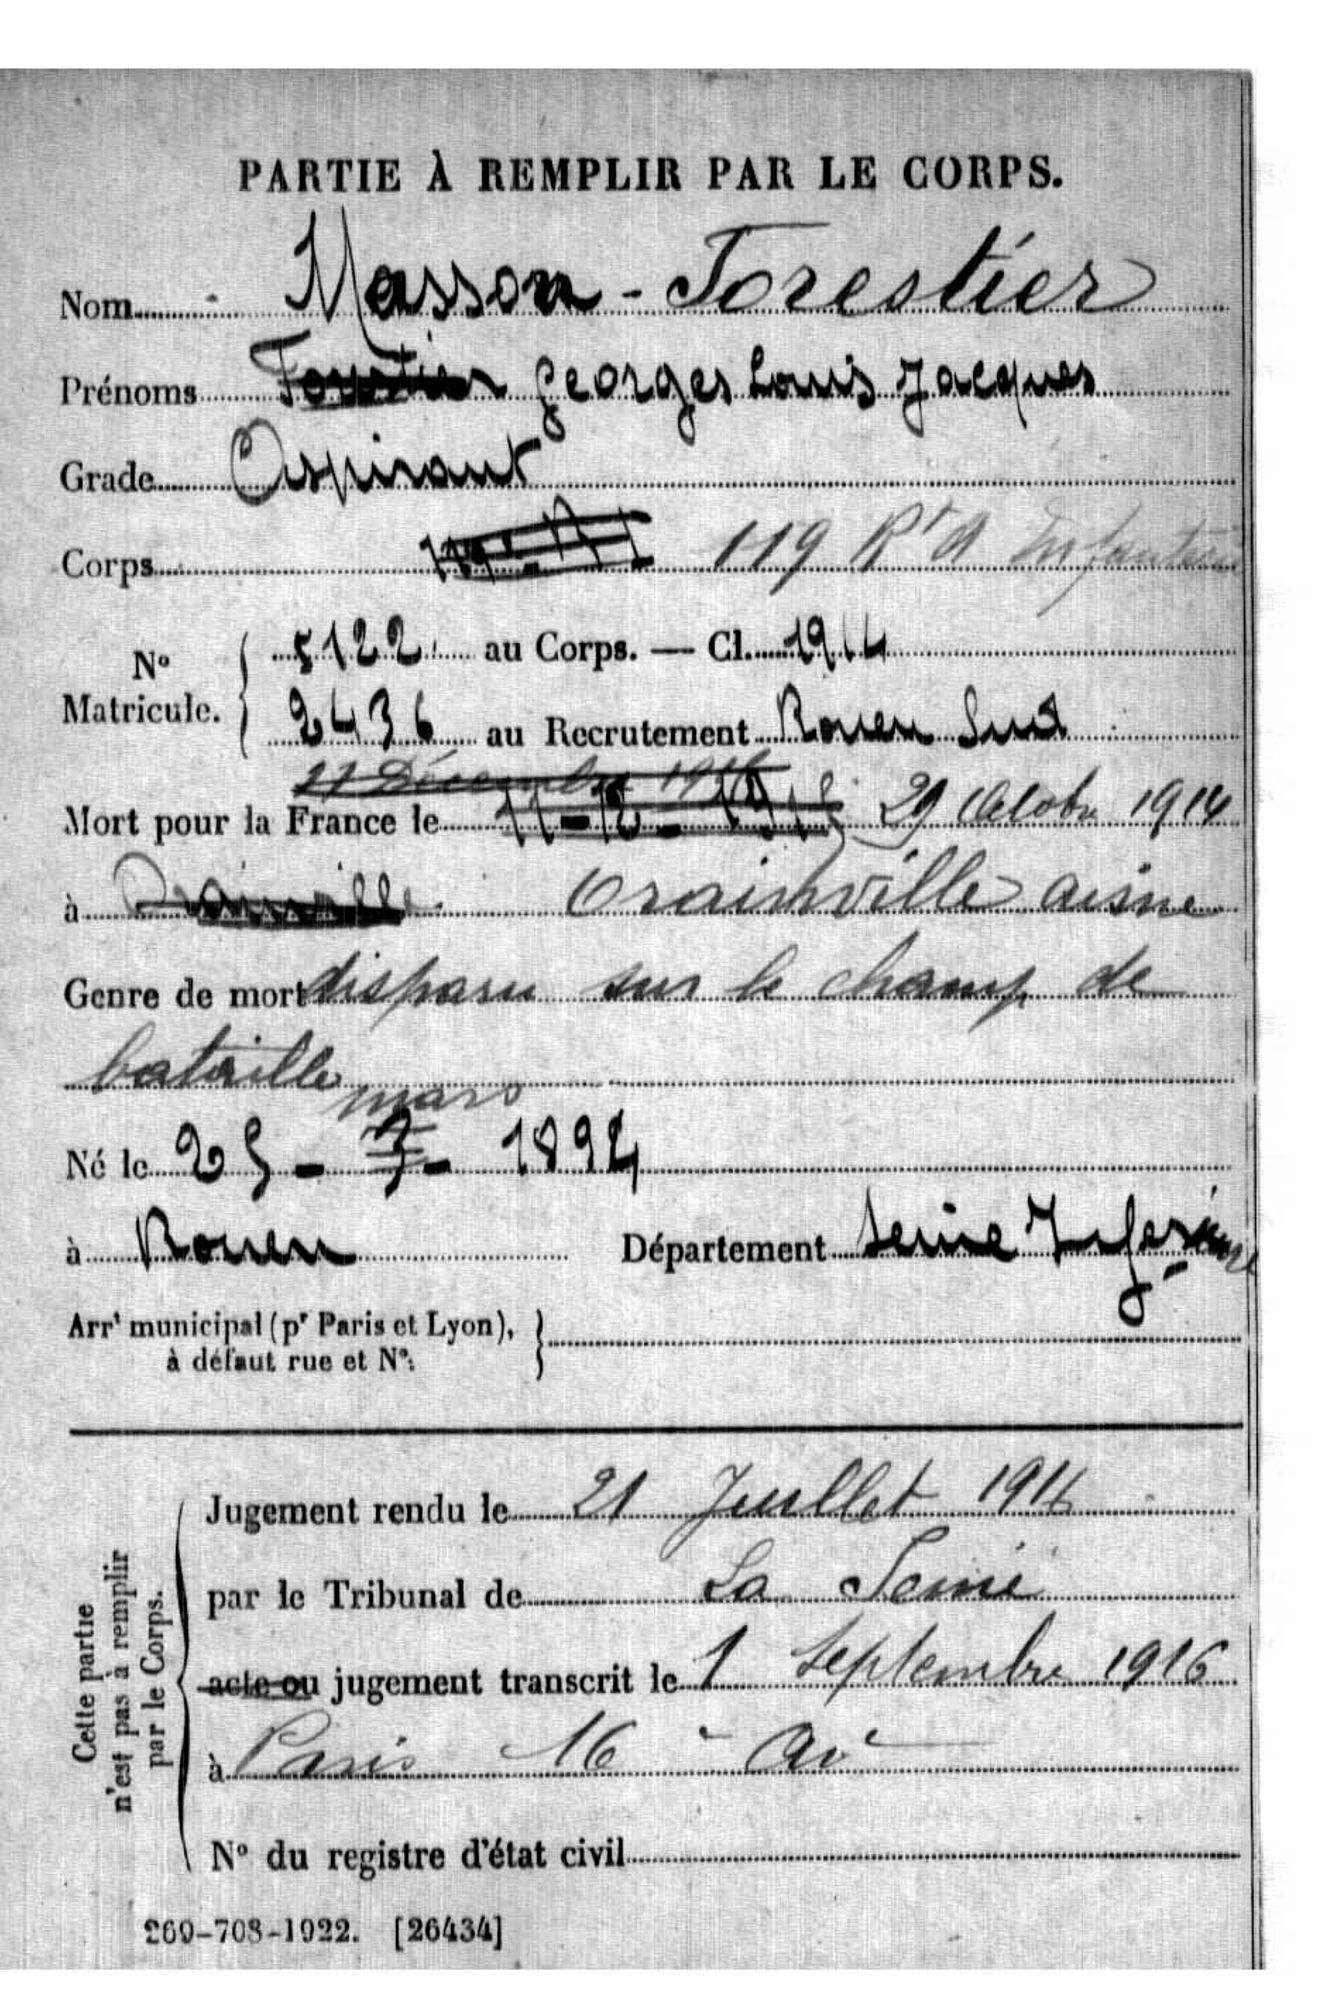 PARTIE À REMPLIR PAR LE CORPS.
Nom Masson - Forestier
Prénoms Forestier Georges Louis Jacques
Grade Aspirant
Corps 119 RI 119 Rt d' Infanterie
N° Matricule. 5122 au Corps. — Cl. 1914
2436 au Recrutement Rouen Sud
11 Décembre 1914
Mort pour la France le 11-12-1915 29 Octobre 1914
à Orainville aisne
Genre de mort disparu sur le champ de
bataille
mars
Né le 25 - 3 - 1894
à Rouen Département Seine Inférieure
Arrt municipal (pr Paris et Lyon),
à défaut rue et N°.
Cette partie
n'est pas à remplir
par le Corps.
Jugement rendu le 21 Juillet 1916
par le Tribunal de La Seine
acte ou jugement transcrit le 1 Septembre 1916
à Paris 16 - ar
N° du registre d'état civil
269-708-1922. [26434]